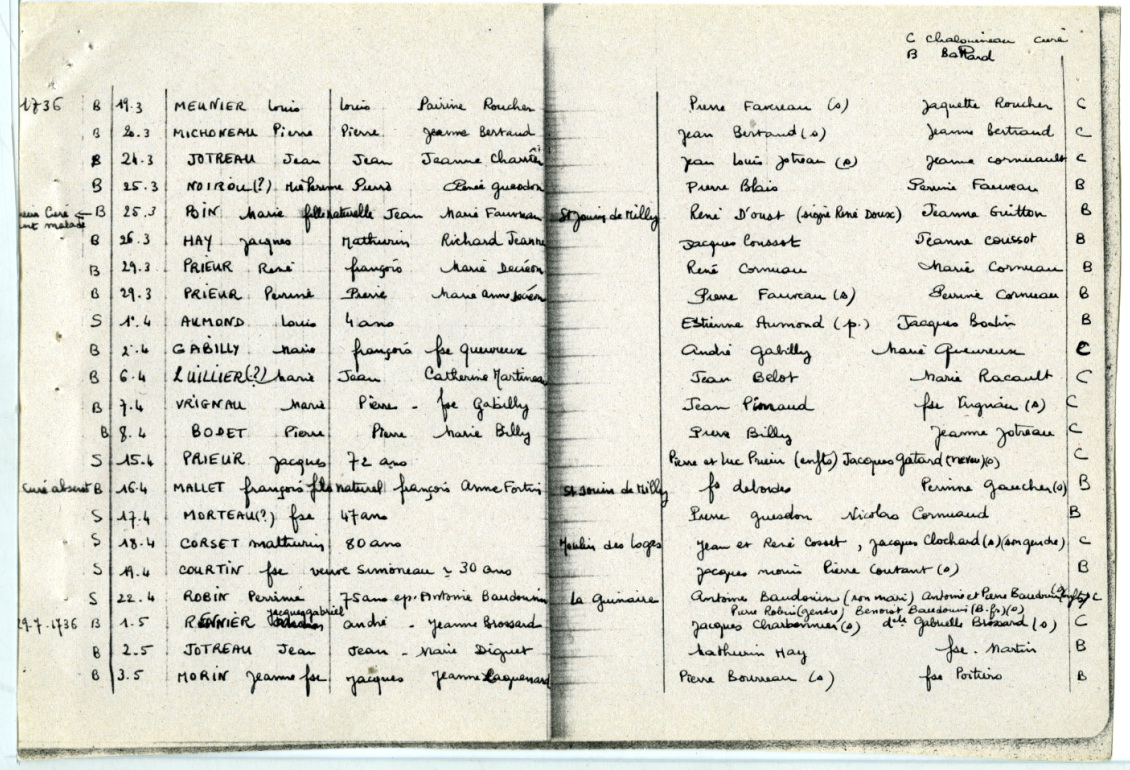 C Chalouineau curé
B Battard
1736 B 19.3 MEUNIER Louis Louis Pairine Roucher Pierre Favreau (s) Jaquette Roucher C
B 20.3 MICHONEAU Pierre Pierre Jeanne Bertaud Jean Bertaud (s) Jeanne bertraud C
B 24.3 JOTREAU Jean Jean Jeanne jean Louis Jotreau (s) Jeanne cornuault C
B 25.3 NOIROU(?) Pierre Renée guesdon Pierre Blais Perrine Fauveau B
curé B 25.3 BOIN Marie fille naturelle Jean Marie Fauveau St Jouin de Milly René D'oust (signé René Doux) Jeanne Guitton B
malade
B 26.3 HAY Jacques Mathurin Richard Jeanne Jacques Coussot Jeanne coussot B
B 29.3 PRIEUR René françois Marie René Cornuau Marie Cornuau B
B 29.3 PRIEUR Perrine Pierre Marie anne Pierre Fauveau (s) Perrine Cornuau B
S 1.4 AUMOND Louis 4 ans Estienne Aumond (p.) Jacques Boutin B
B 2.4 GABILLY Marie françois fse queureux André Gabilly Marie Queureux C
B 6.4 LUILLIER(?) Marie Jean Catherine Martineau Jean Belot Marie Racault C
B 7.4 VRIGNAU Marie Pierre - fse Gabilly Jean Pinaud fse Vrignau (s) C
B 8.4 BODET Pierre Pierre Marie Billy Pierre Billy Jeanne Jotreau C
S 15.4 PRIEUR Jacques 72 ans Pierre et Luc Prieur (enfts) Jacques Gatard (neveu)(s) C
Curé absent B 16.4 MALLET françois fils naturel françois Anne Fortin St Jouin de Milly fs debordes Perrine Gaucher (s) B
S 17.4 MORTEAU(?) fse 47 ans Pierre guesdon Nicolas Cornuaud B
S 18.4 CORSET mathurin 80 ans Moulin des Loges Jean et René Cosset, Jacques Clochard (s) (son gendre) C
S 19.4 COURTIN fse veuve Simoneau ~ 30 ans Jacques Pierre Coutant (s) B
S 22.4 ROBIN Perrine 75 ans ep. Antoine Baudouin La Guinaire Antoine Baudouin (son mari) Antoine et Pierre Baudouin (s) C
Pierre Robin (genre) Benoist Baudouin (B.fs) (s)
jacques gabriel
29.7.1736 B 1.5 andré - Jeanne Brossard Jacques Charbonnier (s) dlle Gabrielle Brossard (s) C
B 2.5 JOTREAU Jean Jean - Marie Diguet Mathurin Hay fse. Martin B
B 3.5 MORIN Jeanne fse Jacques Jeanne Pierre Bourreau (s) fse Poitiers B